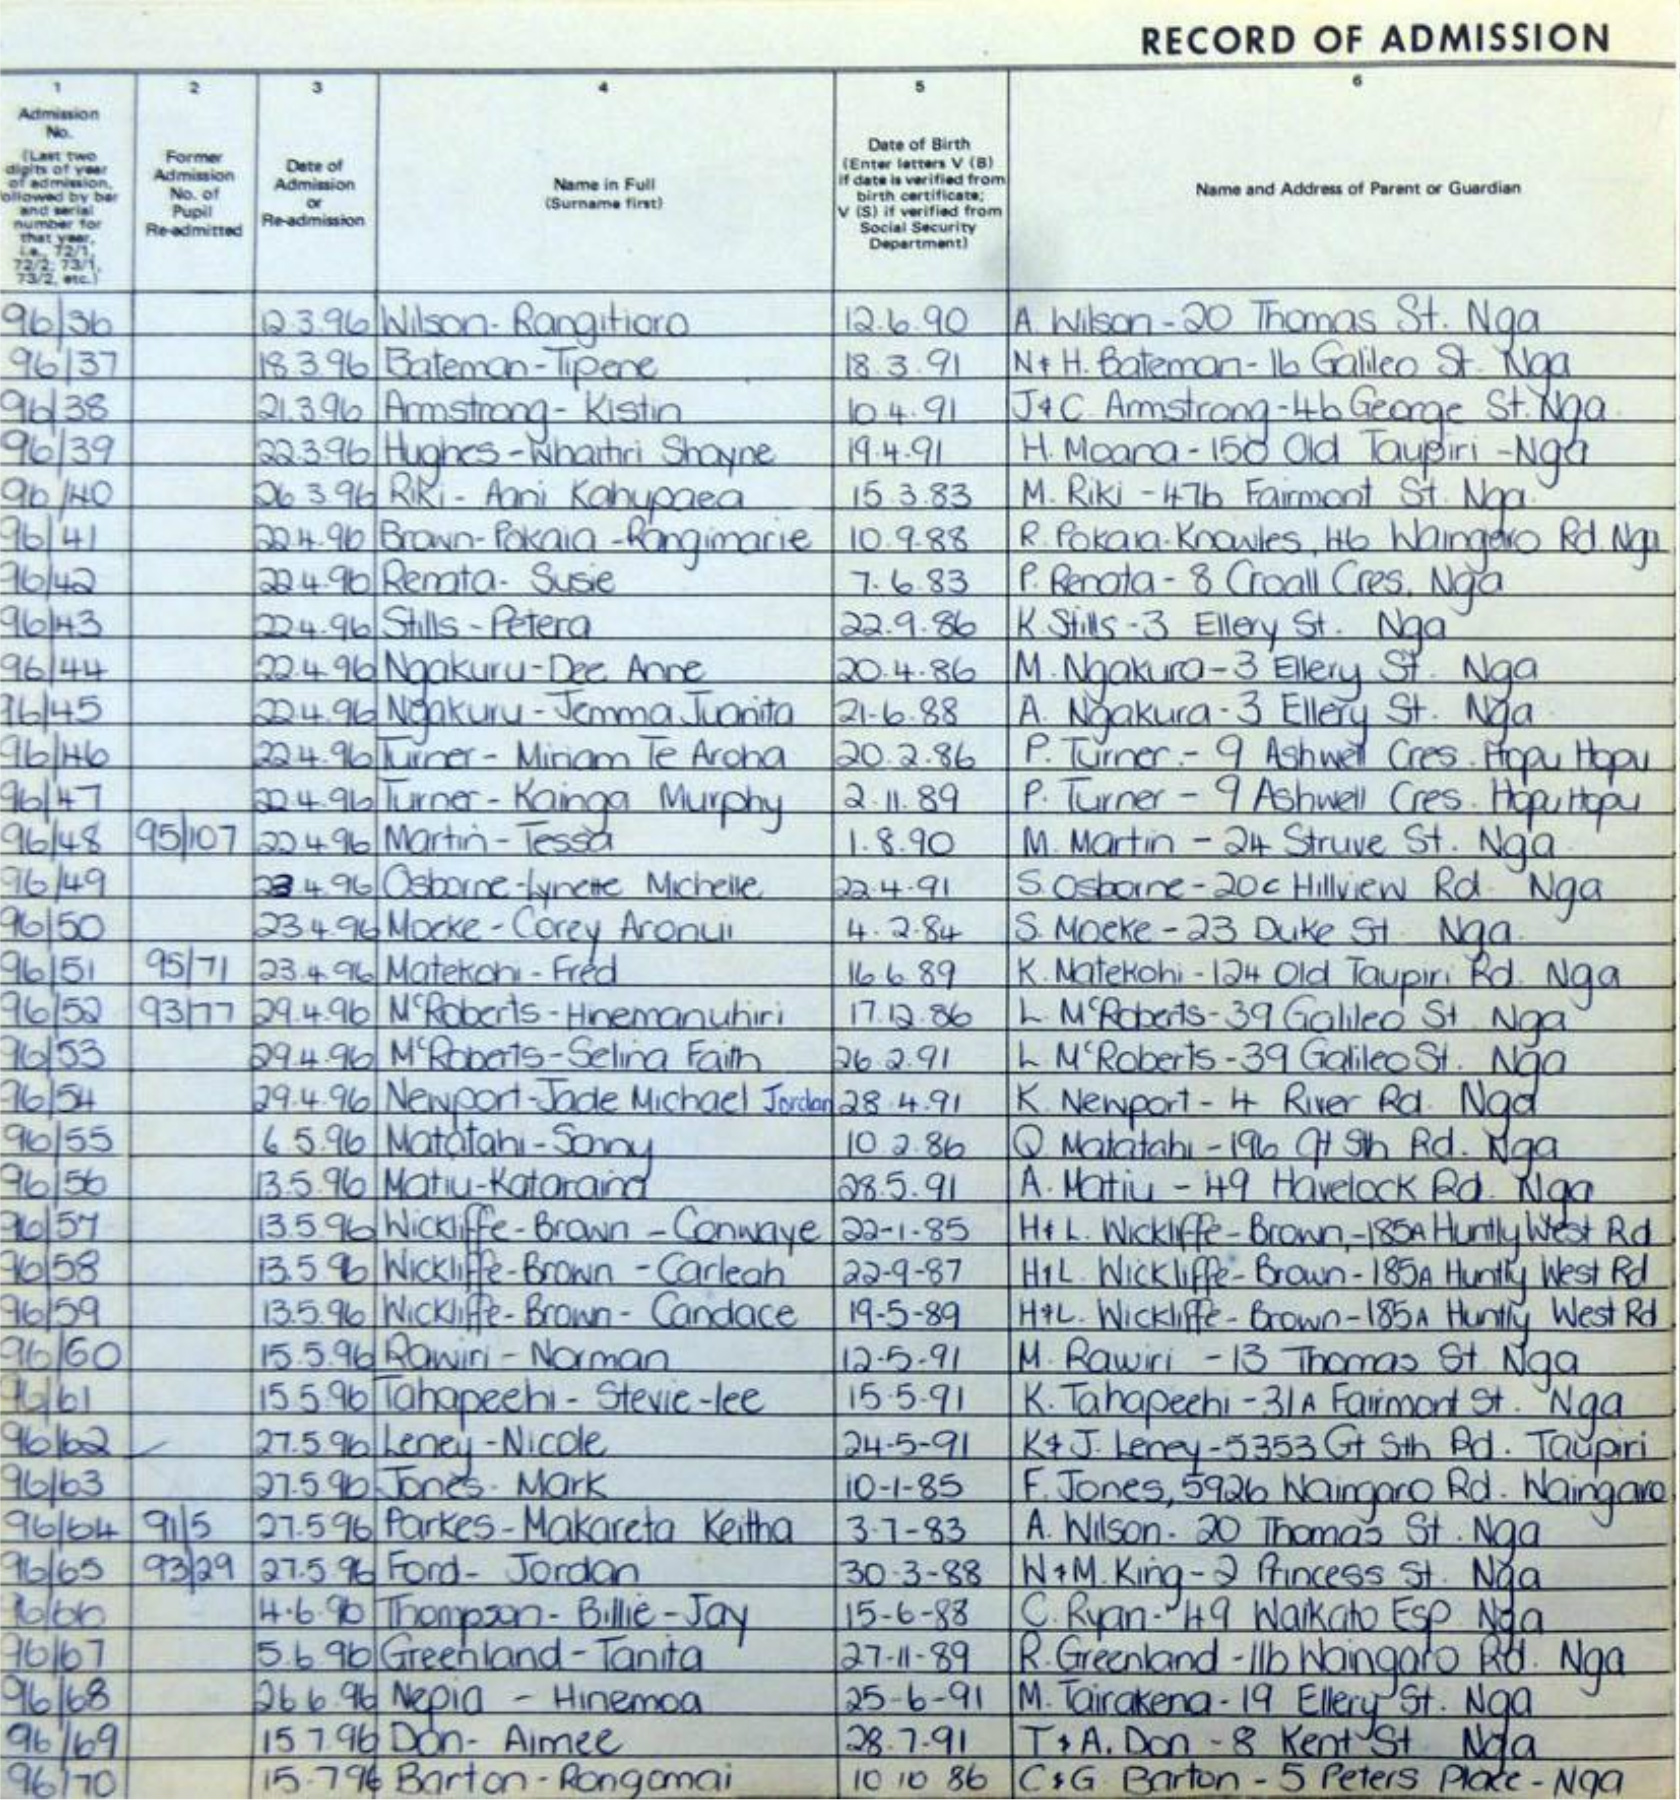 RECORD OF ADMISSION
1 2 3 4 5 6
Admission No. (Last two digits of year of admission, followed by bar and serial number for that year, i.e., 72/1, 72/2, 73/1, 73/2, etc.)
Former Admission No. of Pupil Re-admitted
Date of Admission or Re-admission
Name in Full (Surname first)
Date of Birth (Enter letters V (B) if date is verified from birth certificate; V (S) if verified from Social Security Department)
Name and Address of Parent or Guardian
96/36 12 3.96 Wilson- Rangitiaro 12.6.90 A. Wilson - 20 Thomas St. Nga
96/37 18.3.96 Bateman-Tipene 18.3.91 N & H. Bateman - 16 Galileo St. Nga
96/38 21.3.96 Armstrong- Kistin 10.4.91 J & C Armstrong - 46 George St. Nga
96/39 22.3.96 Hughes - Whaitiri Shayne 19.4.91 H. Moana - 150 Old Taupiri - Nga
96/40 26 3.96 Riki - Aani Kahupaea 15.3.83 M. Riki - 47b Fairmont St. Nga
96/41 22.4.96 Brown-Pokaia -Rangimarie 10.9.88 R. Pokaia-Knowles, 46 Waingaro Rd. Nga
96/42 22.4.96 Renata- Susie 7.6.83 P. Renata - 8 Croall Cres. Nga
96/43 22.4.96 Stills - Petera 22.9.86 K. Stills - 3 Ellery St. Nga
96/44 22.4.96 Ngakuru-Dee Anne 20.4.86 M. Ngakura - 3 Ellery St. Nga
96/45 22.4.96 Ngakuru - Jemma Juanita 21-6.88 A. Ngakura - 3 Ellery St. Nga
96/46 22.4.96 Turner - Miriam Te Aroha 20.2.86 P. Turner - 9 Ashwell Cres. Hopu Hopu
96/47 22.4.96 Turner - Kainga Murphy 2.11.89 P. Turner - 9 Ashwell Cres. Hopu Hopu
96/48 95/107 22.4.96 Martin - Tessa 1.8.90 M. Martin - 24 Struve St. Nga
96/49 23 4.96 Osborne-Lynette Michelle 22.4.91 S. Osborne - 20c Hillview Rd. Nga
96/50 23.4.96 Moeke - Corey Aronui 4.2.84 S. Moeke - 23 Duke St Nga
96/51 95/71 23.4.96 Matekohi - Fred 16 6.89 K. Matekohi - 124 Old Taupiri Rd. Nga
96/52 93/77 29.4.96 McRoberts - Hinemanuhiri 17.12.86 L. McRoberts - 39 Galileo St Nga
96/53 29.4.96 McRoberts-Selina Faith 26.2.91 L McRoberts - 39 Galileo St. Nga
96/54 29.4.96 Newport-Jade Michael Jordan 28.4.91 K. Newport - 4 River Rd. Nga
96/55 6.5.96 Matatahi-Sonny 10.2.86 Q Matatahi - 196 Gt Sth Rd. Nga
96/56 13.5.96 Matiu-Kataraina 28.5.91 A. Matiu - 49 Havelock Rd. Nga
96/57 13.5.96 Wickliffe-Brown - Conwaye 22-1-85 H & L. Wickliffe - Brown, - 185A Huntly West Rd
96/58 13.5 96 Wickliffe-Brown - Carleah 22-9-87 H & L. Wickliffe - Brown - 185A Huntly West Rd
96/59 13.5.96 Wickliffe-Brown - Candace 19-5-89 H & L. Wickliffe - Brown - 185A Huntly West Rd
96/60 15.5.96 Rawiri - Norman 12-5-91 M. Rawiri - 13 Thomas St Nga
96/61 15.5.96 Tahapeehi - Stevie-lee 15-5-91 K. Tahapeehi - 31A Fairmont St. Nga
96/62 27.5.96 Leney -Nicole 24-5-91 K & J. Leney - 5353 Gt Sth Rd. Taupiri
96/63 27.5.96 Jones- Mark 10-1-85 F. Jones, 592b Waingaro Rd. Waingaro
96/64 91/5 27.5 96 Parkes - Makareta Keitha 3-7-83 A. Wilson - 20 Thomas St. Nga
96/65 93/29 27.5 96 Ford- Jordan 30-3-88 W & M. King - 2 Princess St. Nga
96/66 4.6.96 Thompson- Billie-Jay 15-6-88 C. Ryan - 49 Waikato Esp Nga
96/67 5.6 96 Greenland-Tanita 27-11-89 R. Greenland - 11b Waingaro Rd. Nga
96/68 26 6.96 Nepia - Hinemoa 25-6-91 M. Tairakena - 19 Ellery St. Nga
96/69 15 7.96 Don- Aimee 28.7-91 T & A. Don - 8 Kent St Nga
96/70 15.7 96 Barton-Rongomai 10 10 86 C & G. Barton - 5 Peters Place - Nga